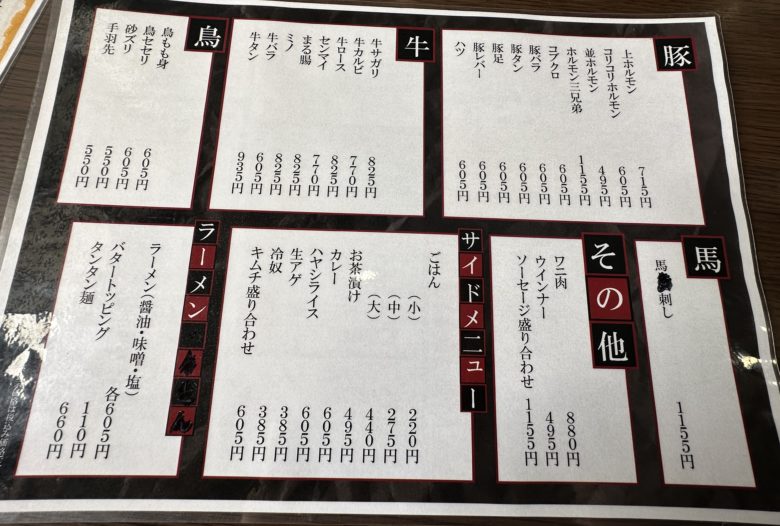 豚
上ホルモン 715円
コリコリホルモン 605円
並ホルモン 495円
ホルモン三兄弟 1155円
コブクロ 605円
豚バラ 605円
豚タン 605円
豚足 605円
豚レバー 605円
ハツ 605円
牛
牛サガリ 825円
牛カルビ 770円
牛ロース 825円
センマイ 770円
まる腸 825円
ミノ 825円
牛バラ 605円
牛タン 935円
鳥
鳥もも身 605円
鳥セセリ 605円
砂ズリ 550円
手羽先 550円
馬
馬刺し 1155円
その他
ワニ肉 880円
ウインナー 495円
ソーセージ盛り合わせ 1155円
サイドメニュー
ごはん (小) 220円
(中) 275円
(大) 440円
お茶漬け 495円
カレー 605円
ハヤシライス 605円
生アゲ 385円
冷奴 385円
キムチ盛り合わせ 605円
ラーメン
ラーメン(醤油・味噌・塩) 各605円
バタートッピング 110円
タンタン麺 660円